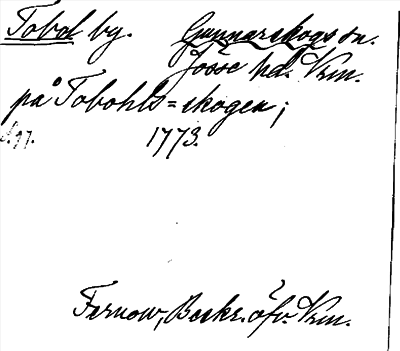 Tobol by. Gunnarskogs sn.
Jösse hd. Vrm.
på Tobohls=skogen;
s.97. 1773.
Fernow, Beskr. öfv. Vrm.